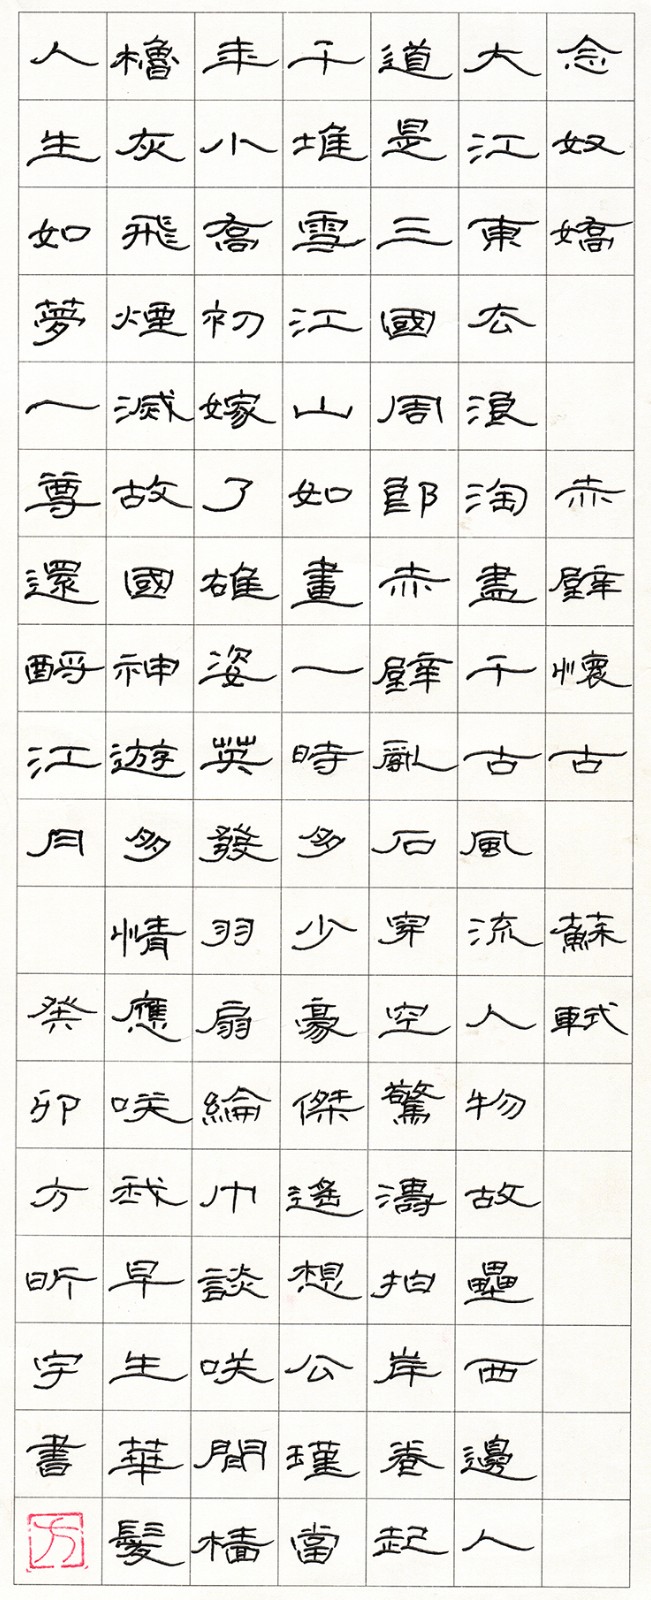 念奴嬌 赤壁懷古 蘇軾
大江東去浪淘盡千古風流人物故壘西邊人
道是三國周郎赤壁亂石穿空驚濤拍岸卷起
千堆雪江山如畫一時多少豪傑遙想公瑾當
年小喬初嫁了雄姿英發羽扇綸巾談咲間檣
櫓灰飛煙滅故國神遊多情應咲我早生華髮
人生如夢一尊還酹江月 癸卯方昕宇書
方